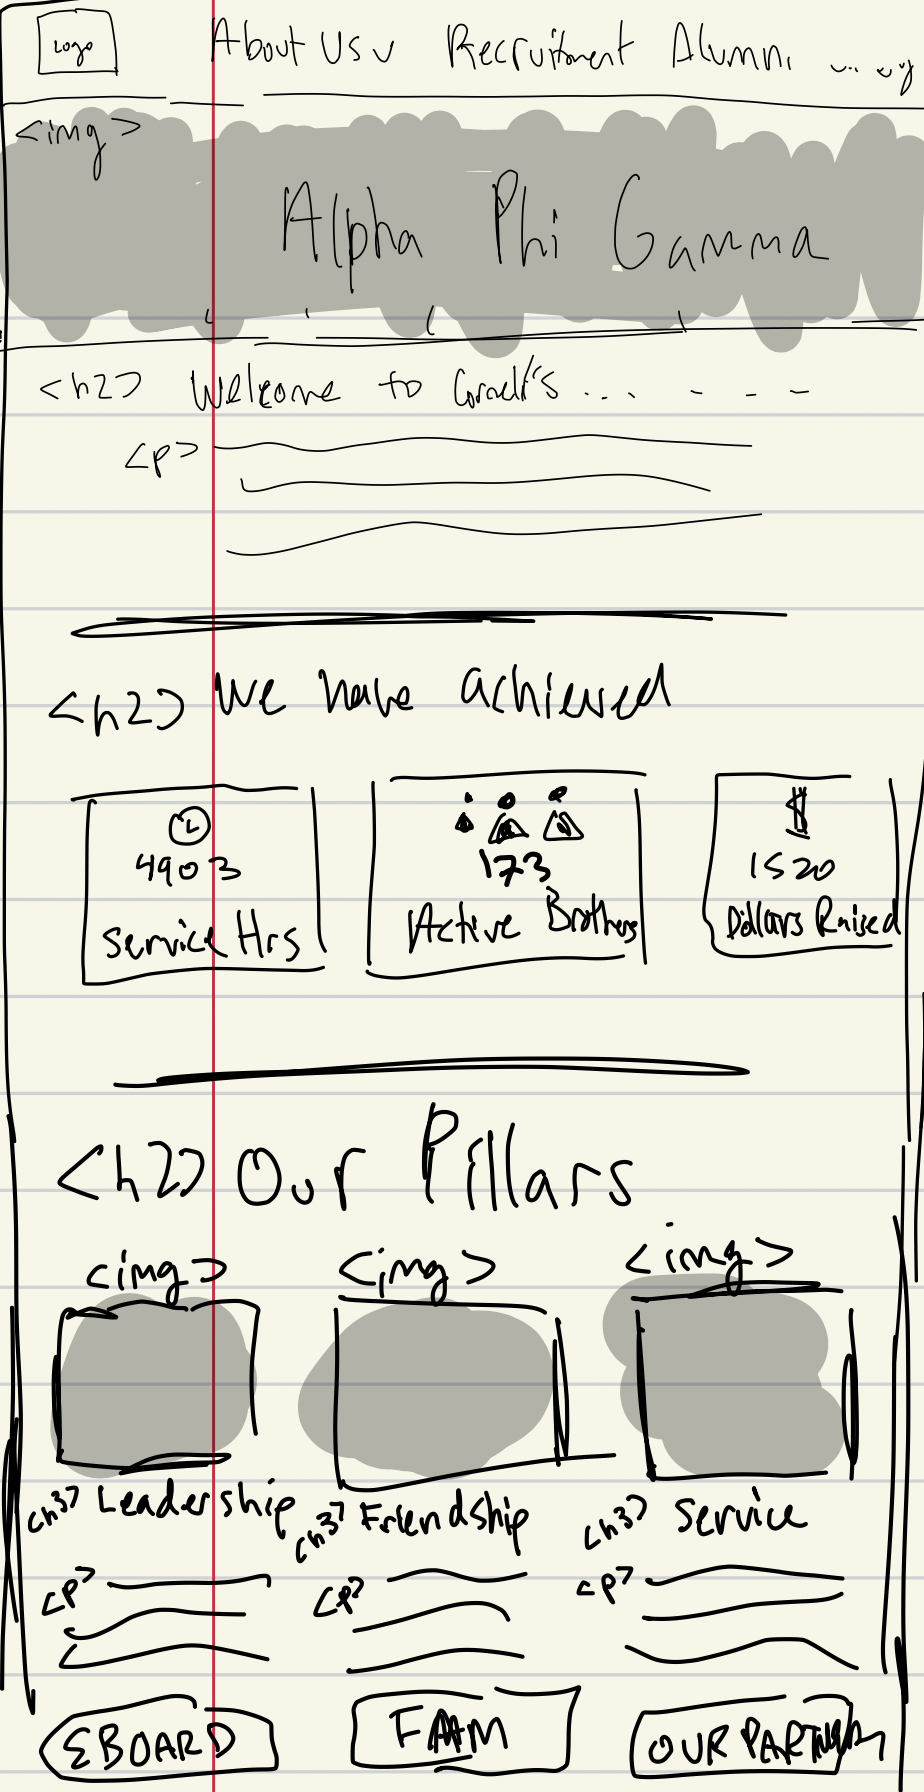 Logo About Us v Recruitment Alumni ...
<img>
Alpha Phi Gamma
<h2> Welcome to Cornell's ... - - -
<p>
<h2> We have achieved
4903 173 1520
Service Hrs Active Brothers Dollars Raised
<h2> Our Pillars
<img> <img> <img>
<h3> Leadership <h3> Friendship <h3> Service
<p> <p> <p>
EBOARD OUR